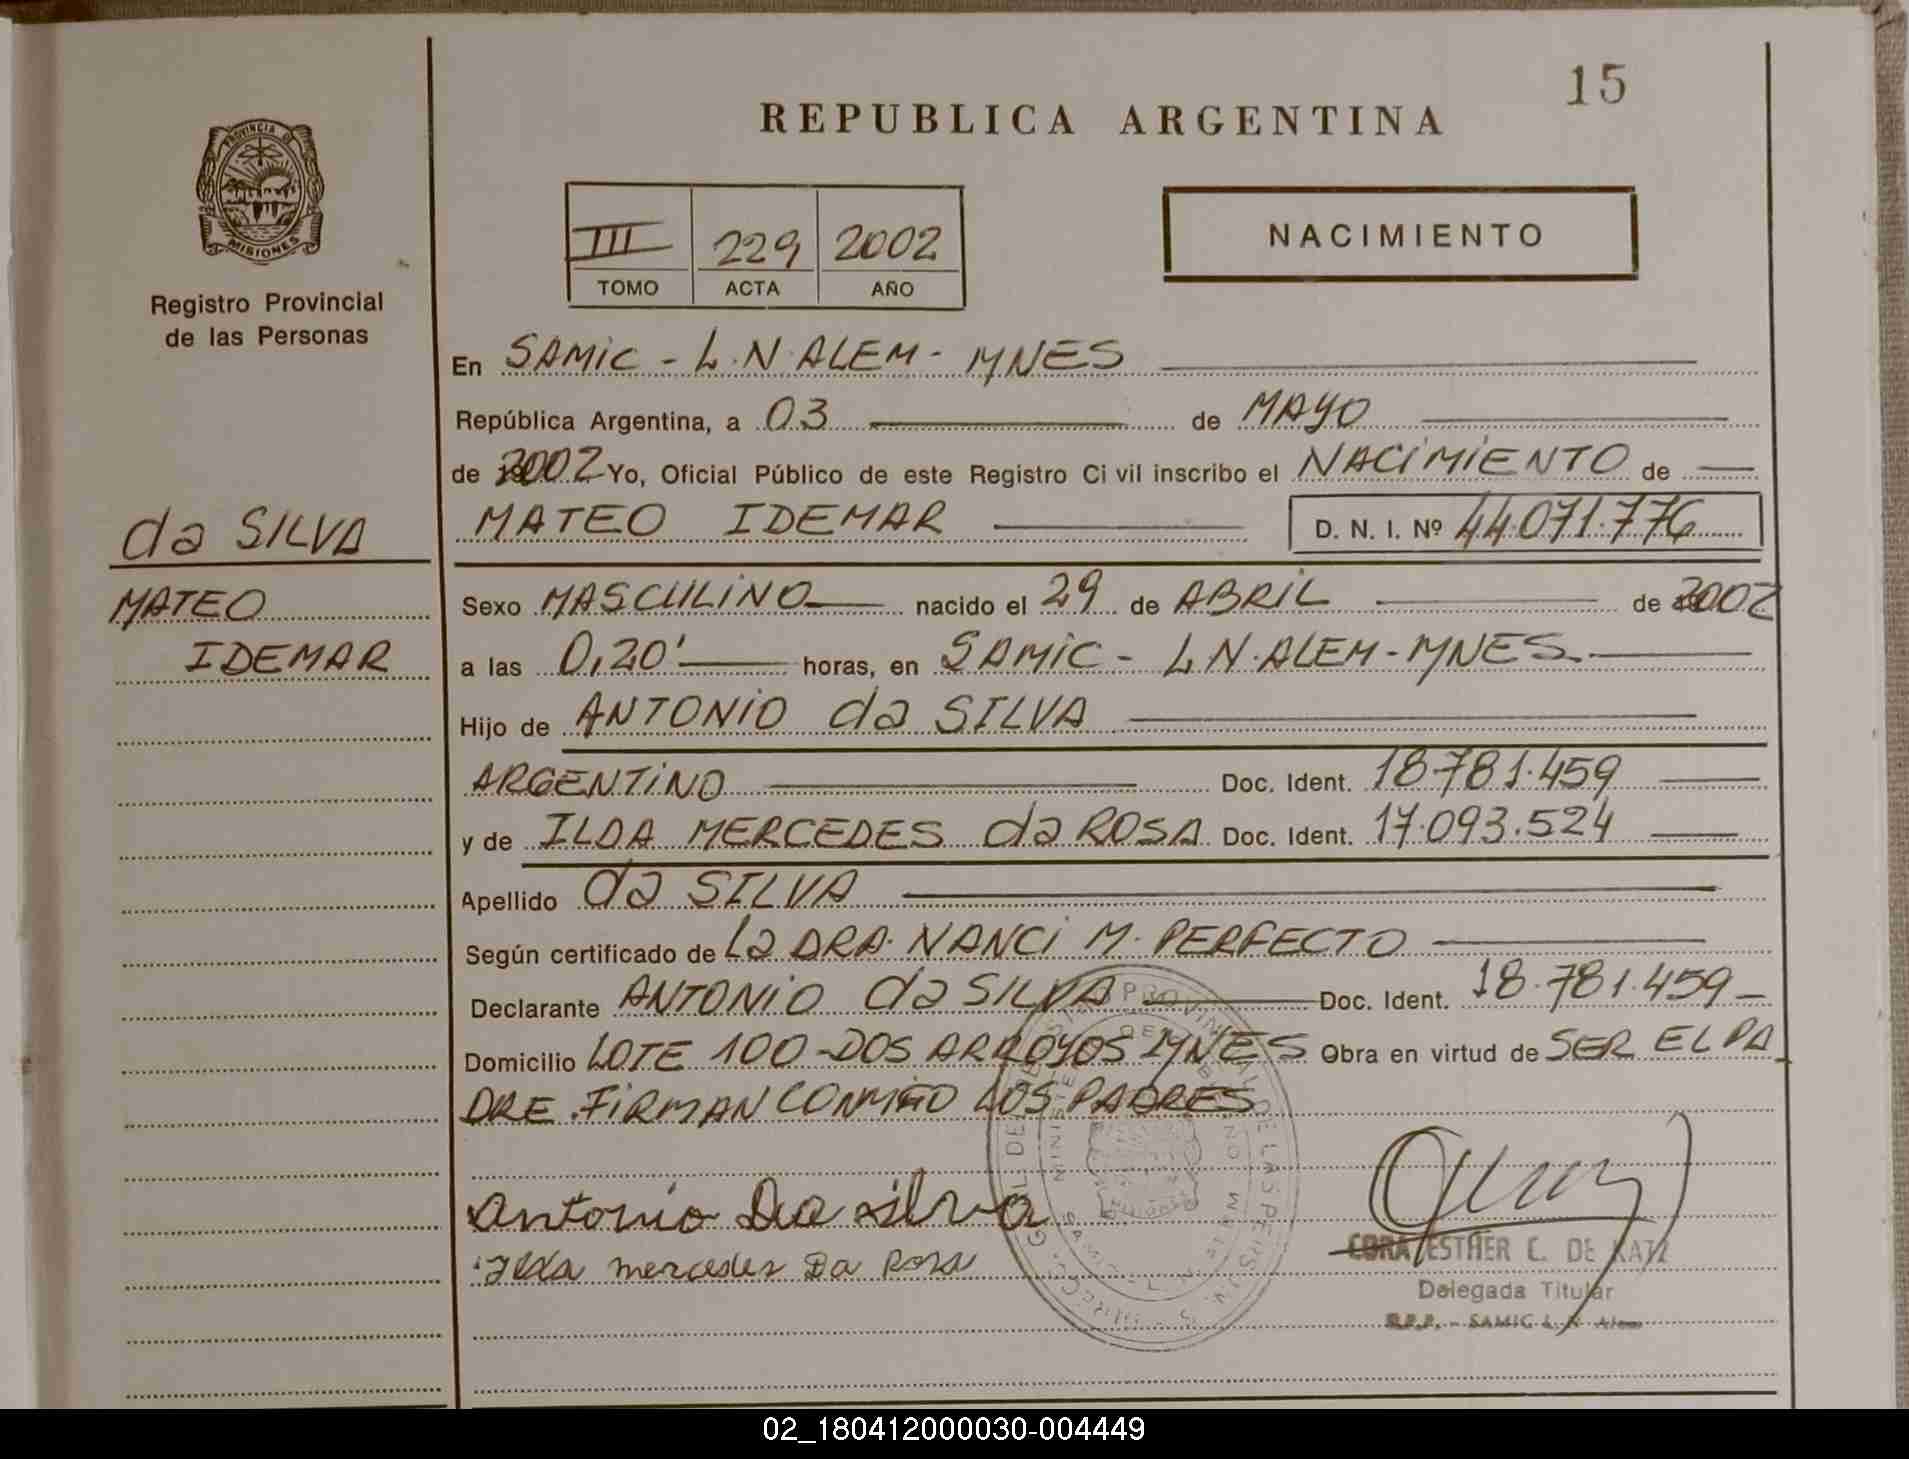 15
REPUBLICA ARGENTINA
PROVINCIA DE
MISIONES
Registro Provincial
de las Personas
III 229 2002
TOMO ACTA AÑO
NACIMIENTO
En SAMIC - L.N. ALEM - MNES
República Argentina, a 03 de MAYO
de 2002 Yo, Oficial Público de este Registro Civil inscribo el NACIMIENTO de
da SILVA
MATEO IDEMAR D. N. I. Nº 44.071.776
MATEO
IDEMAR
Sexo MASCULINO nacido el 29 de ABRIL de 2002
a las 0,20' horas, en SAMIC - L.N. ALEM - MNES.
Hijo de ANTONIO da SILVA
ARGENTINO Doc. Ident. 18.781.459
y de ILDA MERCEDES da ROSA Doc. Ident. 17.093.524
Apellido da SILVA
Según certificado de La DRA. NANCI M. PERFECTO
Declarante ANTONIO da SILVA Doc. Ident. 18.781.459
Domicilio LOTE 100 - DOS ARROYOS MNES Obra en virtud de SER EL PA
DRE. FIRMAN CONMIGO LOS PADRES
Antonio Da silva
Ilda mercedes Da Rosa
CORA ESTHER C. DE KATZ
Delegada Titular
R.P.P. - SAMIC L. N. Alem
02_180412000030-004449